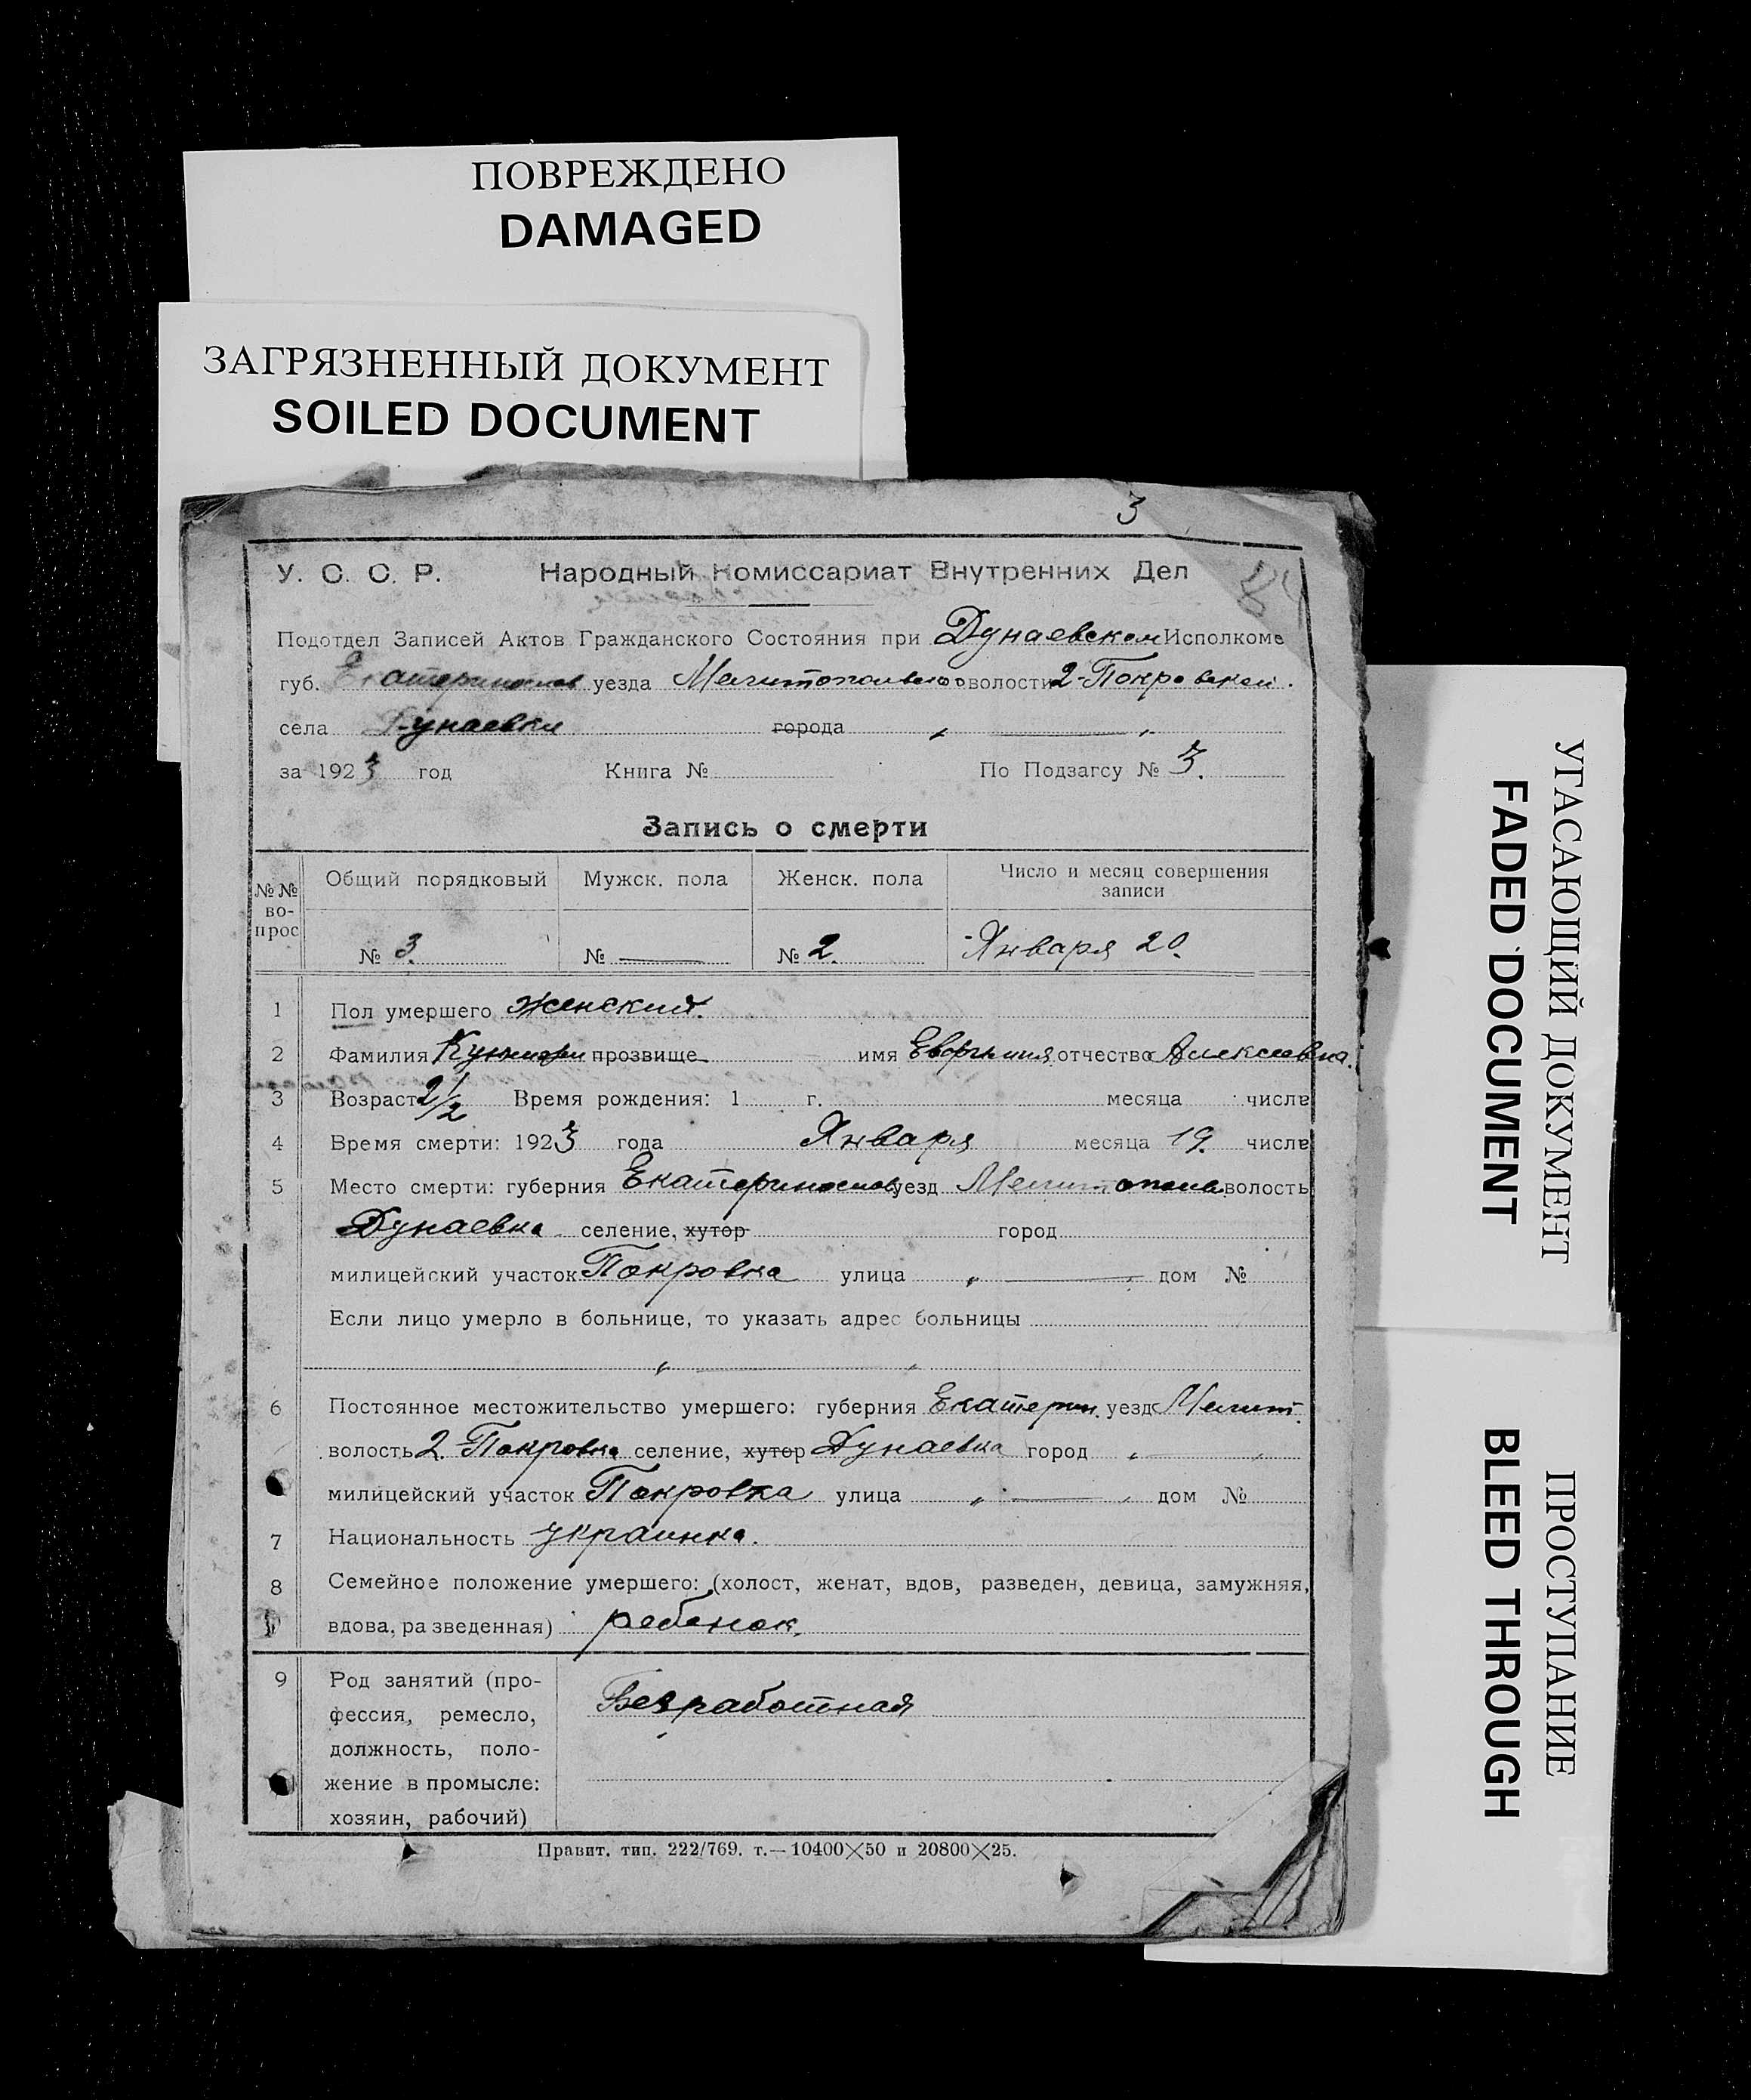 ПОВРЕЖДЕНО
DAMAGED
ЗАГРЯЗНЕННЫЙ ДОКУМЕНТ
SOILED DOCUMENT
3
У. С. С. Р. Народный Комиссариат Внутренних Дел
Подотдел Записей Актов Гражданского Состояния при Дунаевском Исполкоме
губ. Екатеринослав уезда Мелитопольского волости 2-Покровской.
села Дунаевки города „ — „
за 1923 год Книга № По Подзагсу № 3.
Запись о смерти
№№ во-прос Общий порядковый Мужск. пола Женск. пола Число и месяц совершения записи
№ 3. № — № 2. Января 20.
1 Пол умершего женский.
2 Фамилия прозвище имя отчество Алексеевна.
3 Возраст 2 1/2 Время рождения: 1 г. месяца числа
4 Время смерти: 1923 года Января месяца 19. числа
5 Место смерти: губерния Екатеринослав уезд Мелитополь волость
Дунаевка селение, хутор город
милицейский участок Покровка улица „ — „ дом №
Если лицо умерло в больнице, то указать адрес больницы
„ — „
6 Постоянное местожительство умершего: губерния Екатерин. уезд Мелит.
волость 2. Покровка селение, хутор Дунаевка город „ — „
милицейский участок Покровка улица „ — „ дом №
7 Национальность украинка.
8 Семейное положение умершего: (холост, женат, вдов, разведен, девица, замужняя,
вдова, разведенная) ребенок.
9 Род занятий (про-
фессия, ремесло,
должность, поло-
жение в промысле:
хозяин, рабочий)
Безработная
Правит. тип. 222/769. т.—10400×50 и 20800×25.
УГАСАЮЩИЙ ДОКУМЕНТ
FADED DOCUMENT
ПРОСТУПАНИЕ
BLEED THROUGH